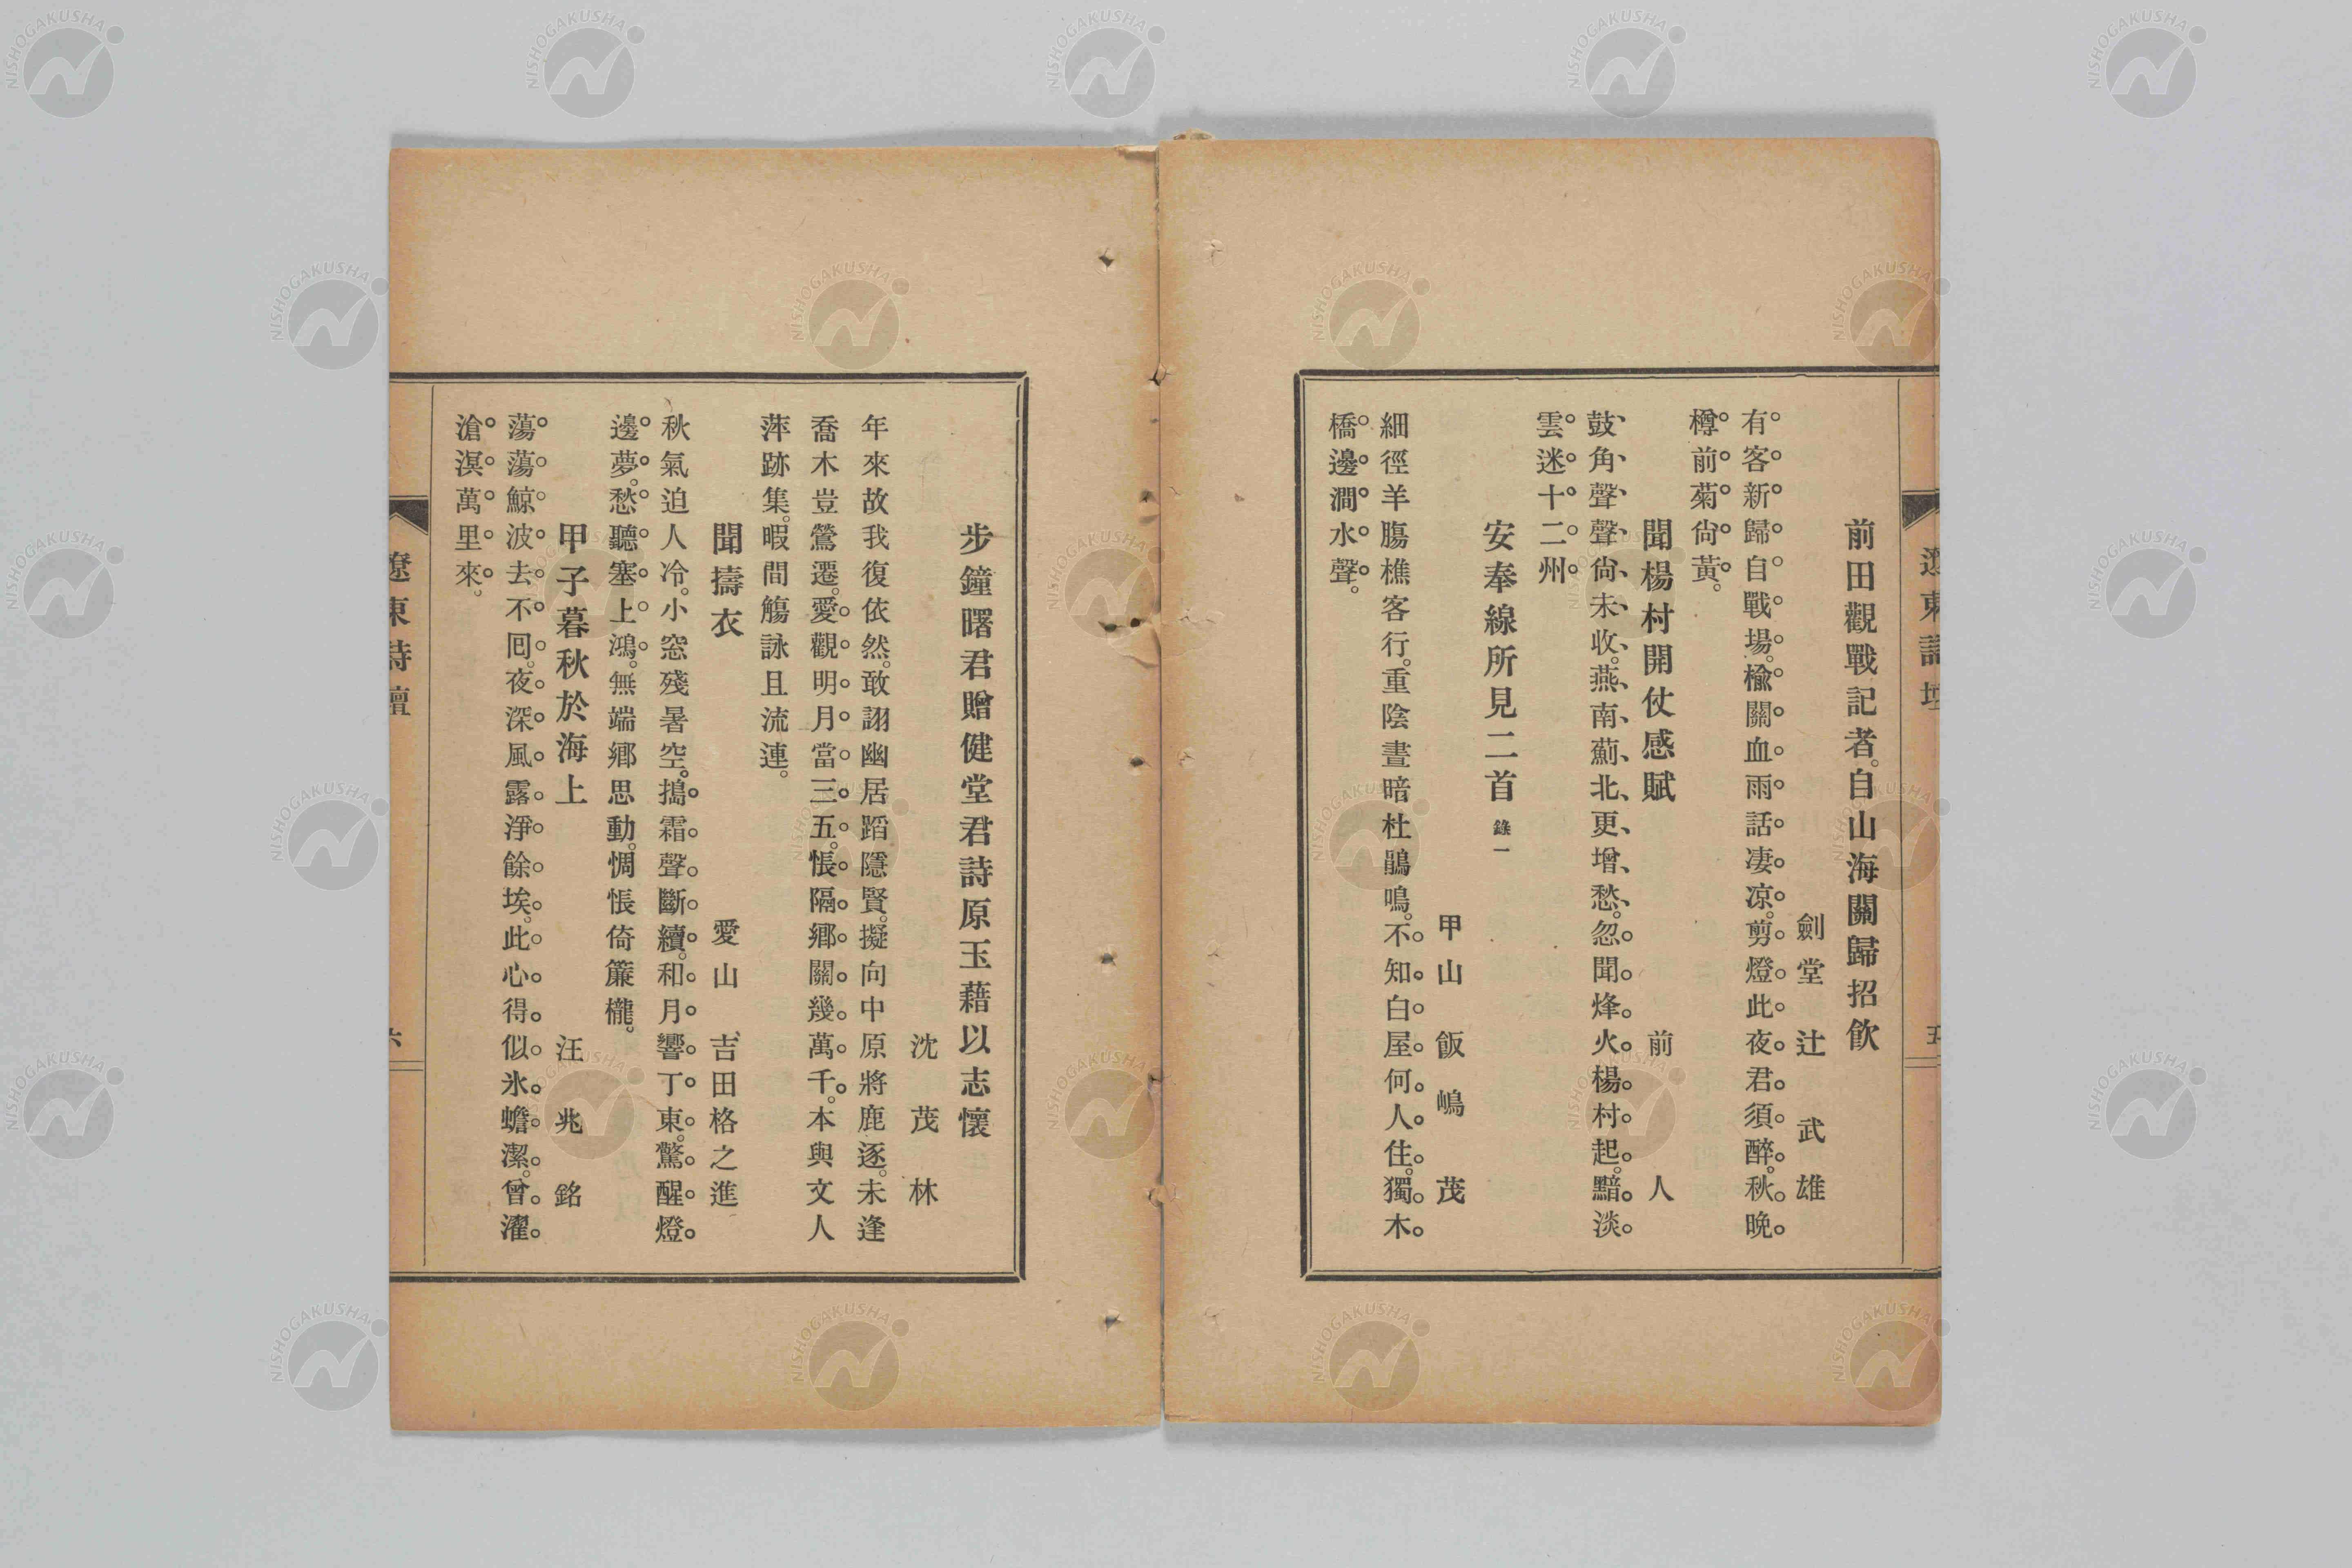 遼東詩壇
五
前田觀戰記者。自山海關歸招飲
劍堂 辻武雄
有客新歸自戰場。楡關血雨話凄凉。剪燈此夜君須醉。秋晩
樽前菊尙黃。
聞楊村開仗感賦 前人
鼓角聲聲尙未收。燕南薊北更增愁。忽聞烽火楊村起。黯淡
雲迷十二州
安奉線所見二首 錄一
甲山 飯嶋茂
細徑羊膓樵客行。重陰晝暗杜鵑鳴。不知白屋何人住。獨木
橋邊澗水聲。
步鐘曙君贈健堂君詩原玉藉以志懷
沈茂林
年來故我復依然。敢詡幽居蹈隱賢。擬向中原將鹿逐。未逢
喬木豈鶯遷。愛觀明月當三五。悵隔鄉關幾萬千。本與文人
萍跡集。暇間觴詠且流連。
聞擣衣 愛山 吉田格之進
秋氣迫人冷。小窓殘暑空。搗霜聲斷續。和月響丁東。驚醒燈
邊夢。愁聽塞上鴻。無端鄉思動。惆悵倚簾櫳。
甲子暮秋於海上 汪兆銘
蕩蕩鯨波去不囘。夜深風露淨餘埃。此心得似氷蟾潔。曾濯
滄溟萬里來。
遼東詩壇
六
NISHOGAKUSHA